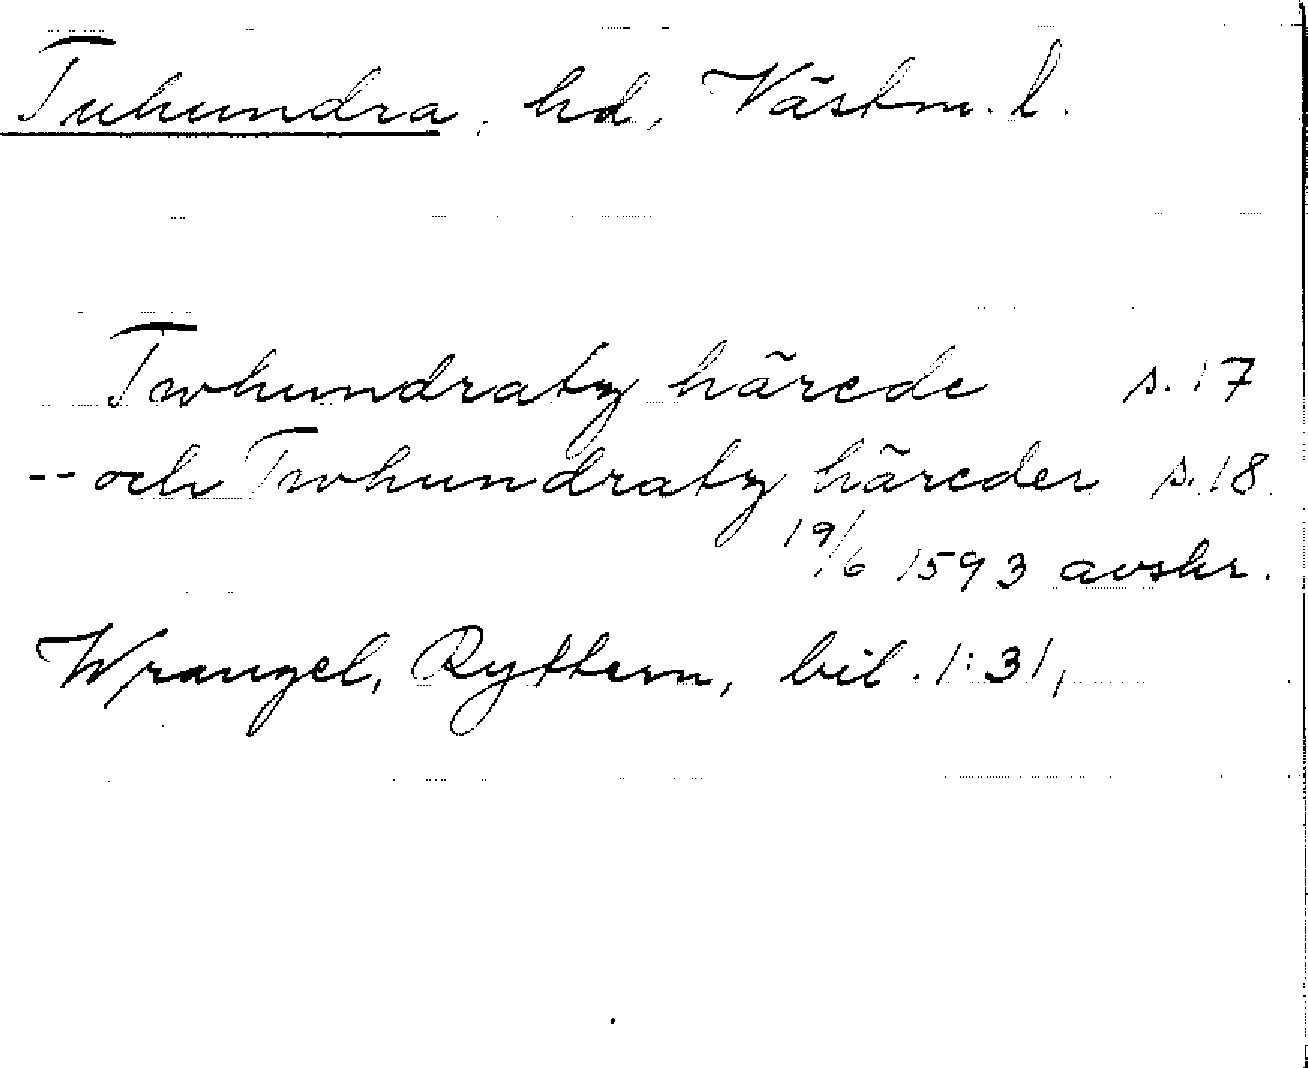 Tuhundra, hd, Västm. l.
Twhundratz härede s. 17
-- och Twhundratz häreder s. 18.
19/6 1593 avskr.
Wrangel, Ryttern, bil. 1:31,